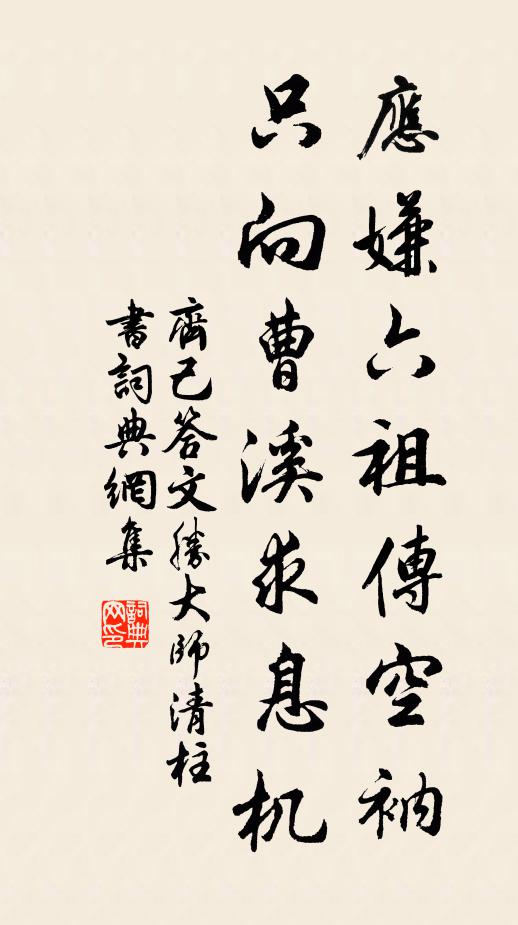 應嫌六祖傳空衲
只向曹溪求息机
齊己答文勝大師清柱
書詞典網集
詞典网印